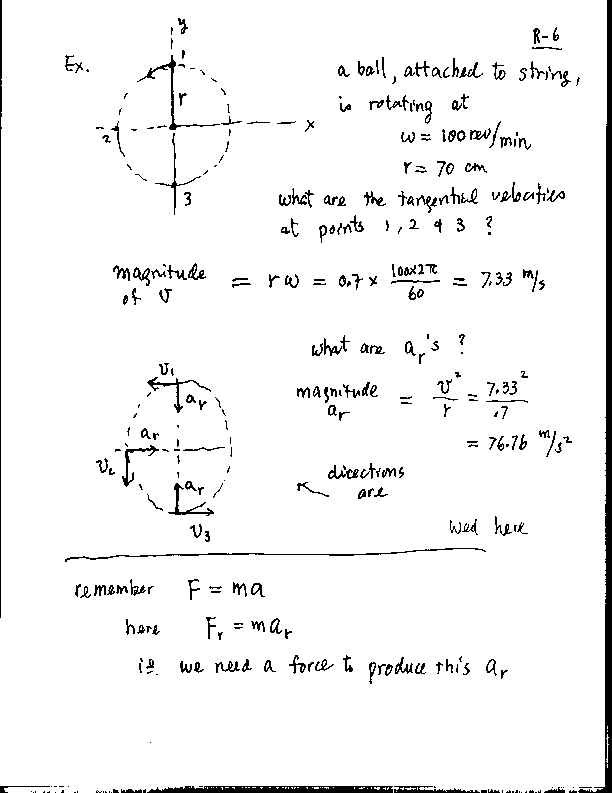 R-6
Ex.
y
1
r
2
x
3
a ball, attached to string,
is rotating at
ω = 100 rev/min
r = 70 cm
what are the tangential velocities
at points 1, 2 & 3 ?
magnitude of v = rω = 0.7 × 100×2π/60 = 7.33 m/s
what are aᵣ's ?
magnitude aᵣ = v²/r = 7.33²/.7
= 76.76 m/s²
v₁
aᵣ
aᵣ
v₂
aᵣ
v₃
directions
are
wed here
remember F = ma
here Fᵣ = maᵣ
ie we need a force to produce this aᵣ